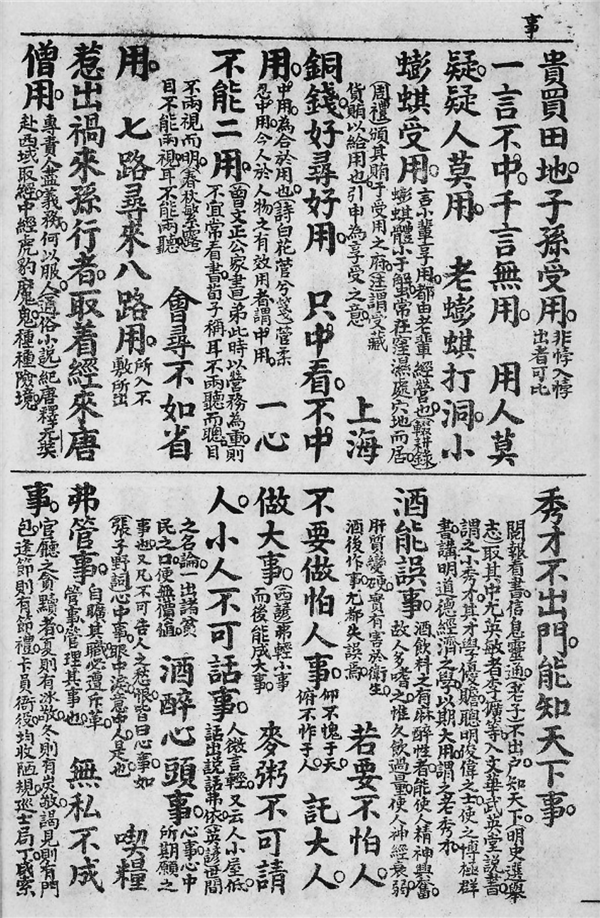 事
貴買田地。子孫受用。非悖入悖出者可比
一言不中。千言無用。 用人莫
疑。疑人莫用。 老蟛蜞打洞。小
蟛蜞受用。言小輩享用。都由老輩經營也。(輟耕錄)蟛蜞體小于蟹。常在窪濕處穴地而居。
(周禮)頒其賄于受用之府。注謂受藏貨賄以給用也。引申為享受之意 上海
銅錢。好尋好用。 只中看不中
用。中用。為合於用也。(詩白花菅兮箋)菅柔忍中用。今人於人物之有效用者謂中用。 一心
不能二用。(曾文正公家書)弟此時以營務為重。則不宜常看書。荀子稱耳不兩聽而聰。目
不兩視而明。(春秋繁露)目不能兩視。耳不能兩聽。 會尋不如省
用。 七路尋來八路用。所入不敷所出
惹出禍來孫行者。取着經來唐
僧用。專責人盡義務。何以服人。(通俗小說)紀唐釋元奘赴西域取經中經虎豹魔鬼種種險境。
秀才不出門。能知天下事。
閱報看書。信息靈通。(老子)不出户知天下。(明史選舉志)取其中尤英敏者李擴等入文華武英堂說書
謂之小秀才。其才學優贍聰明俊偉之士。使之博極群書。講明道德經濟之學。以期大用。謂之老秀才。
酒能誤事。酒飲料之有麻醉性者。能使人精神興奮。故人多嗜之。惟久飲過量。使人神經衰弱
肝質變硬。實有害於衛生。酒後作事。尤都失誤焉。 若要不怕人。
不要做怕人事。仰不愧于天。俯不怍于人。 託大人
做大事。(西諺)弗輕小事而後能成大事。 麥粥不可請
人。小人不可話事。人微言輕。又云人小屋低。話出說話弗依。英諺世間
之名論。一出諸貧民之口便無價值。 酒醉心頭事。心事。心中所期願之
事也。又凡不可告人之愁恨皆曰心事。如(張子野詞)心中事。眼中淚。意中人是也。 喫糧
弗管事。自曠其職。必遭斥革。管事。管理其事也。 無私不成
事。官廳之貪黷者。夏則有冰敬。冬則有炭敬。謁見則有門包。逢節則有節禮。卡員衙役均收陋規。巡士局丁咸索